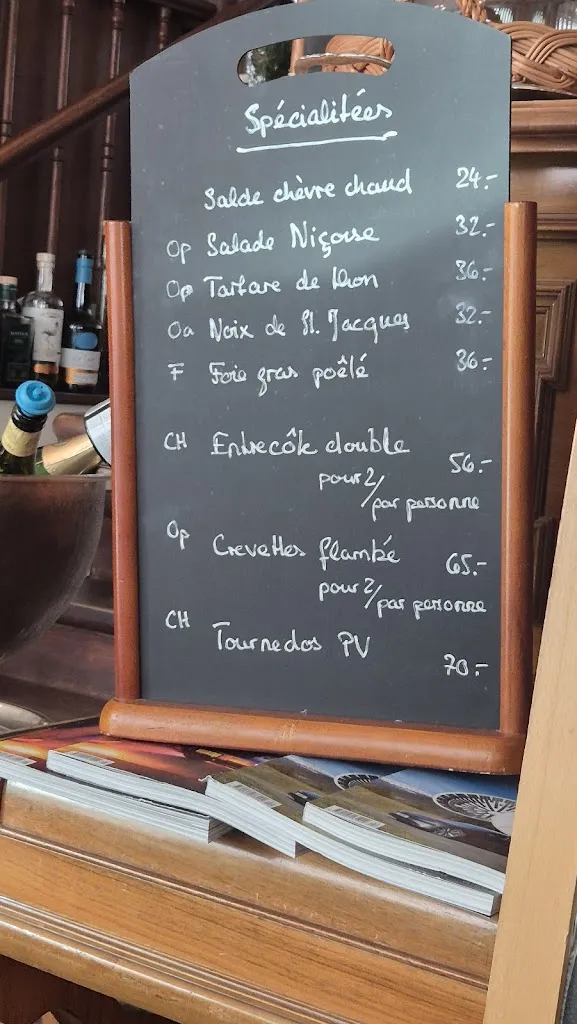 Spécialitées
Salde chèvre chaud 24.-
Op Salade Niçoise 32.-
Op Tartare de thon 36.-
Oa Noix de St. Jacques 32.-
F Foie gras poêlé 36.-
CH Entrecôte double 56.-
pour 2/
par personne
Op Crevettes flambé 65.-
pour 2/
par personne
CH Tournedos PV 70.-